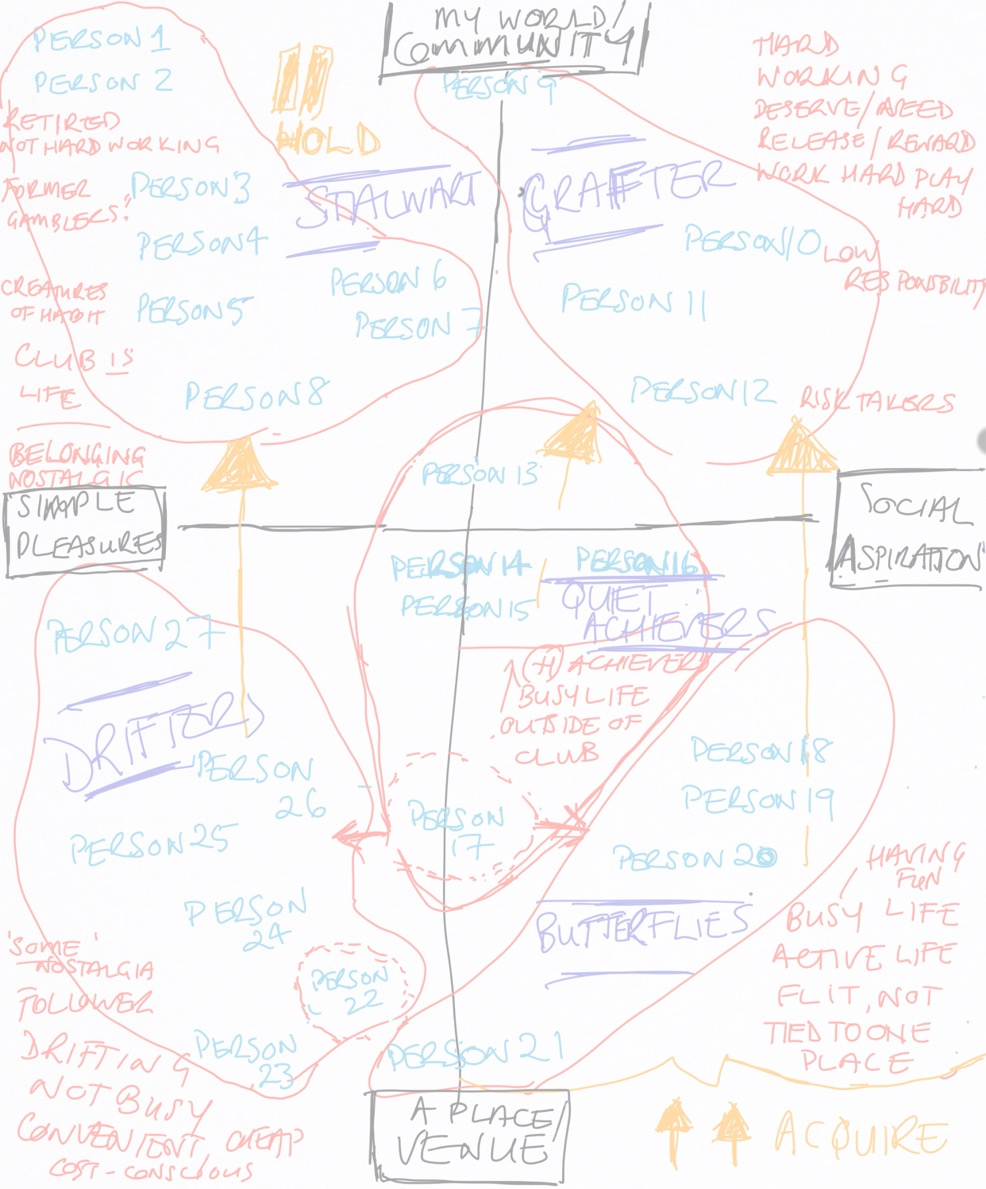 MY WORLD/
COMMUNITY
PERSON 1
PERSON 2
RETIRED
NOT HARD WORKING
FORMER
GAMBLERS?
PERSON 3
PERSON 4
PERSON 5
PERSON 6
PERSON 7
PERSON 8
CREATURES
OF HABIT
CLUB IS
LIFE
BELONGING
NOSTALGIC
HOLD
STALWART
PERSON 9
GRAFTER
PERSON 10
PERSON 11
PERSON 12
HARD
WORKING
DESERVE/NEED
RELEASE/REWARD
WORK HARD PLAY
HARD
LOW
RESPONSIBILITY
RISK TAKERS
SIMPLE
PLEASURES
SOCIAL
ASPIRATION
PERSON 13
PERSON 14
PERSON 15
PERSON 16
QUIET
ACHIEVERS
(H) ACHIEVERS
BUSY LIFE
OUTSIDE OF
CLUB
PERSON
17
PERSON 27
DRIFTERS
PERSON
26
PERSON 25
PERSON
24
PERSON
22
PERSON
23
'SOME'
NOSTALGIA
FOLLOWER
DRIFTING
NOT BUSY
CONVENIENT, CHEAP
COST-CONSCIOUS
PERSON 18
PERSON 19
PERSON 20
BUTTERFLIES
PERSON 21
HAVING
FUN
BUSY LIFE
ACTIVE LIFE
FLIT, NOT
TIED TO ONE
PLACE
A PLACE/
VENUE
ACQUIRE